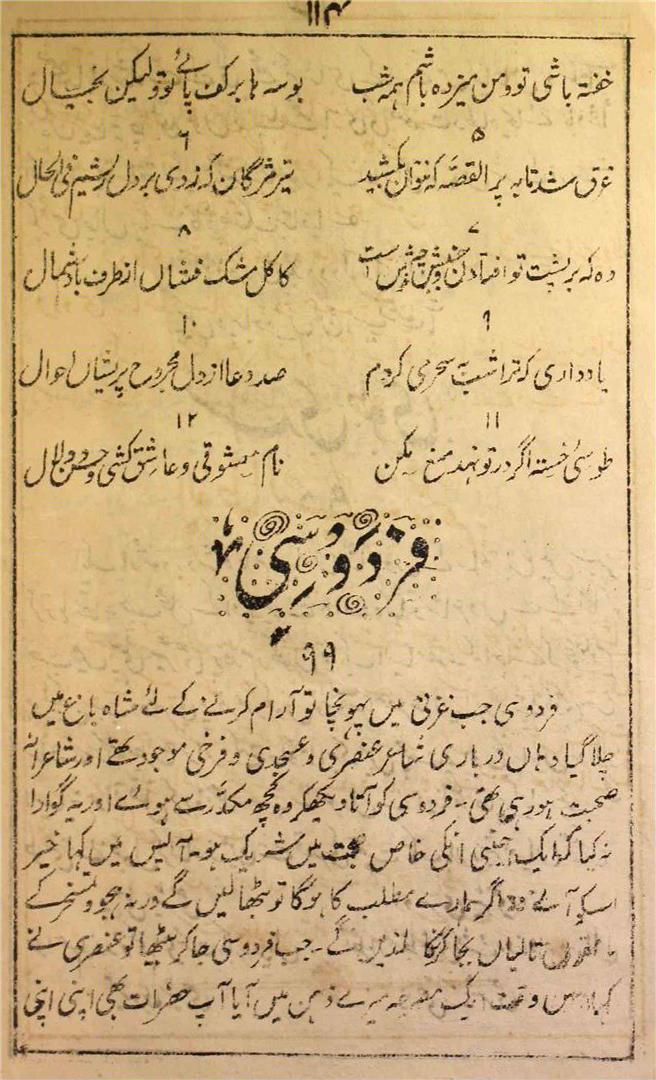 ۱۱۴
خفته باشی تو و من میزده باشم همه شب بوسه ها بر کف پائے تو و لیکن بخیال
۵ ۶
غرق شد تا به پر القصّه که نتوان بکشید تیر مژگان که زدی بر دل ریشم فی الحال
۷ ۸
وه که بر پشت تو افتادن خوش است کاکل مشک فشاں از طرف باد شمال
۹ ۱۰
یاد داری که ترا شب به سحر می کردم صد دعا از دل مجروح پریشاں احوال
۱۱ ۱۲
طوسیٔ خسته اگر در تو نهد منع مکن نام معشوقی و عاشق کشی و حسن و دلال
فردوسی
۹۹
فردوسی جب غزنی میں پہونچا تو آرام کرنے کے لئے شاہ باغ میں
چلا گیا وہاں درباری شاعر عنصری و عسجدی و فرخی موجود تھے اور شاعرانہ
صحبت ہو رہی تھی۔ فردوسی کو آتا دیکھکر وہ کچھ مکدّر سے ہوئے اور یہ گوارا
نہ کیا کہ ایک اجنبی انکی خاص صحبت میں شریک ہو۔ آپس میں کہا خیر
اسکو آنے دو اگر ہمارے مطلب کا ہوگا تو بٹھا لیں گے ورنہ ہجو و تمسخر کے
تالیاں بجا کر گے۔ جب فردوسی جا کر بیٹھا تو عنصری نے
کہا اس وقت ایک مصرعہ میرے ذہن میں آیا آپ حضرات بھی اپنی اپنی